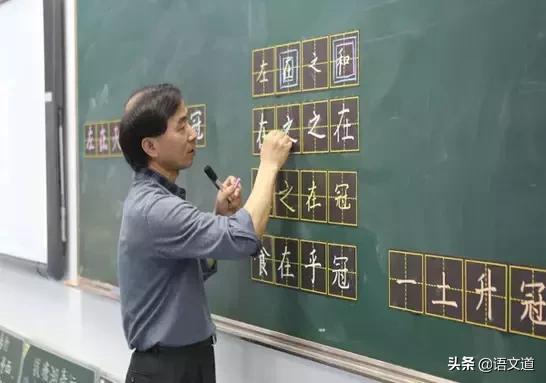 左在 冠
左在之和
在之之在
之在冠
食在乎冠
一土升冠
头条 @语文道